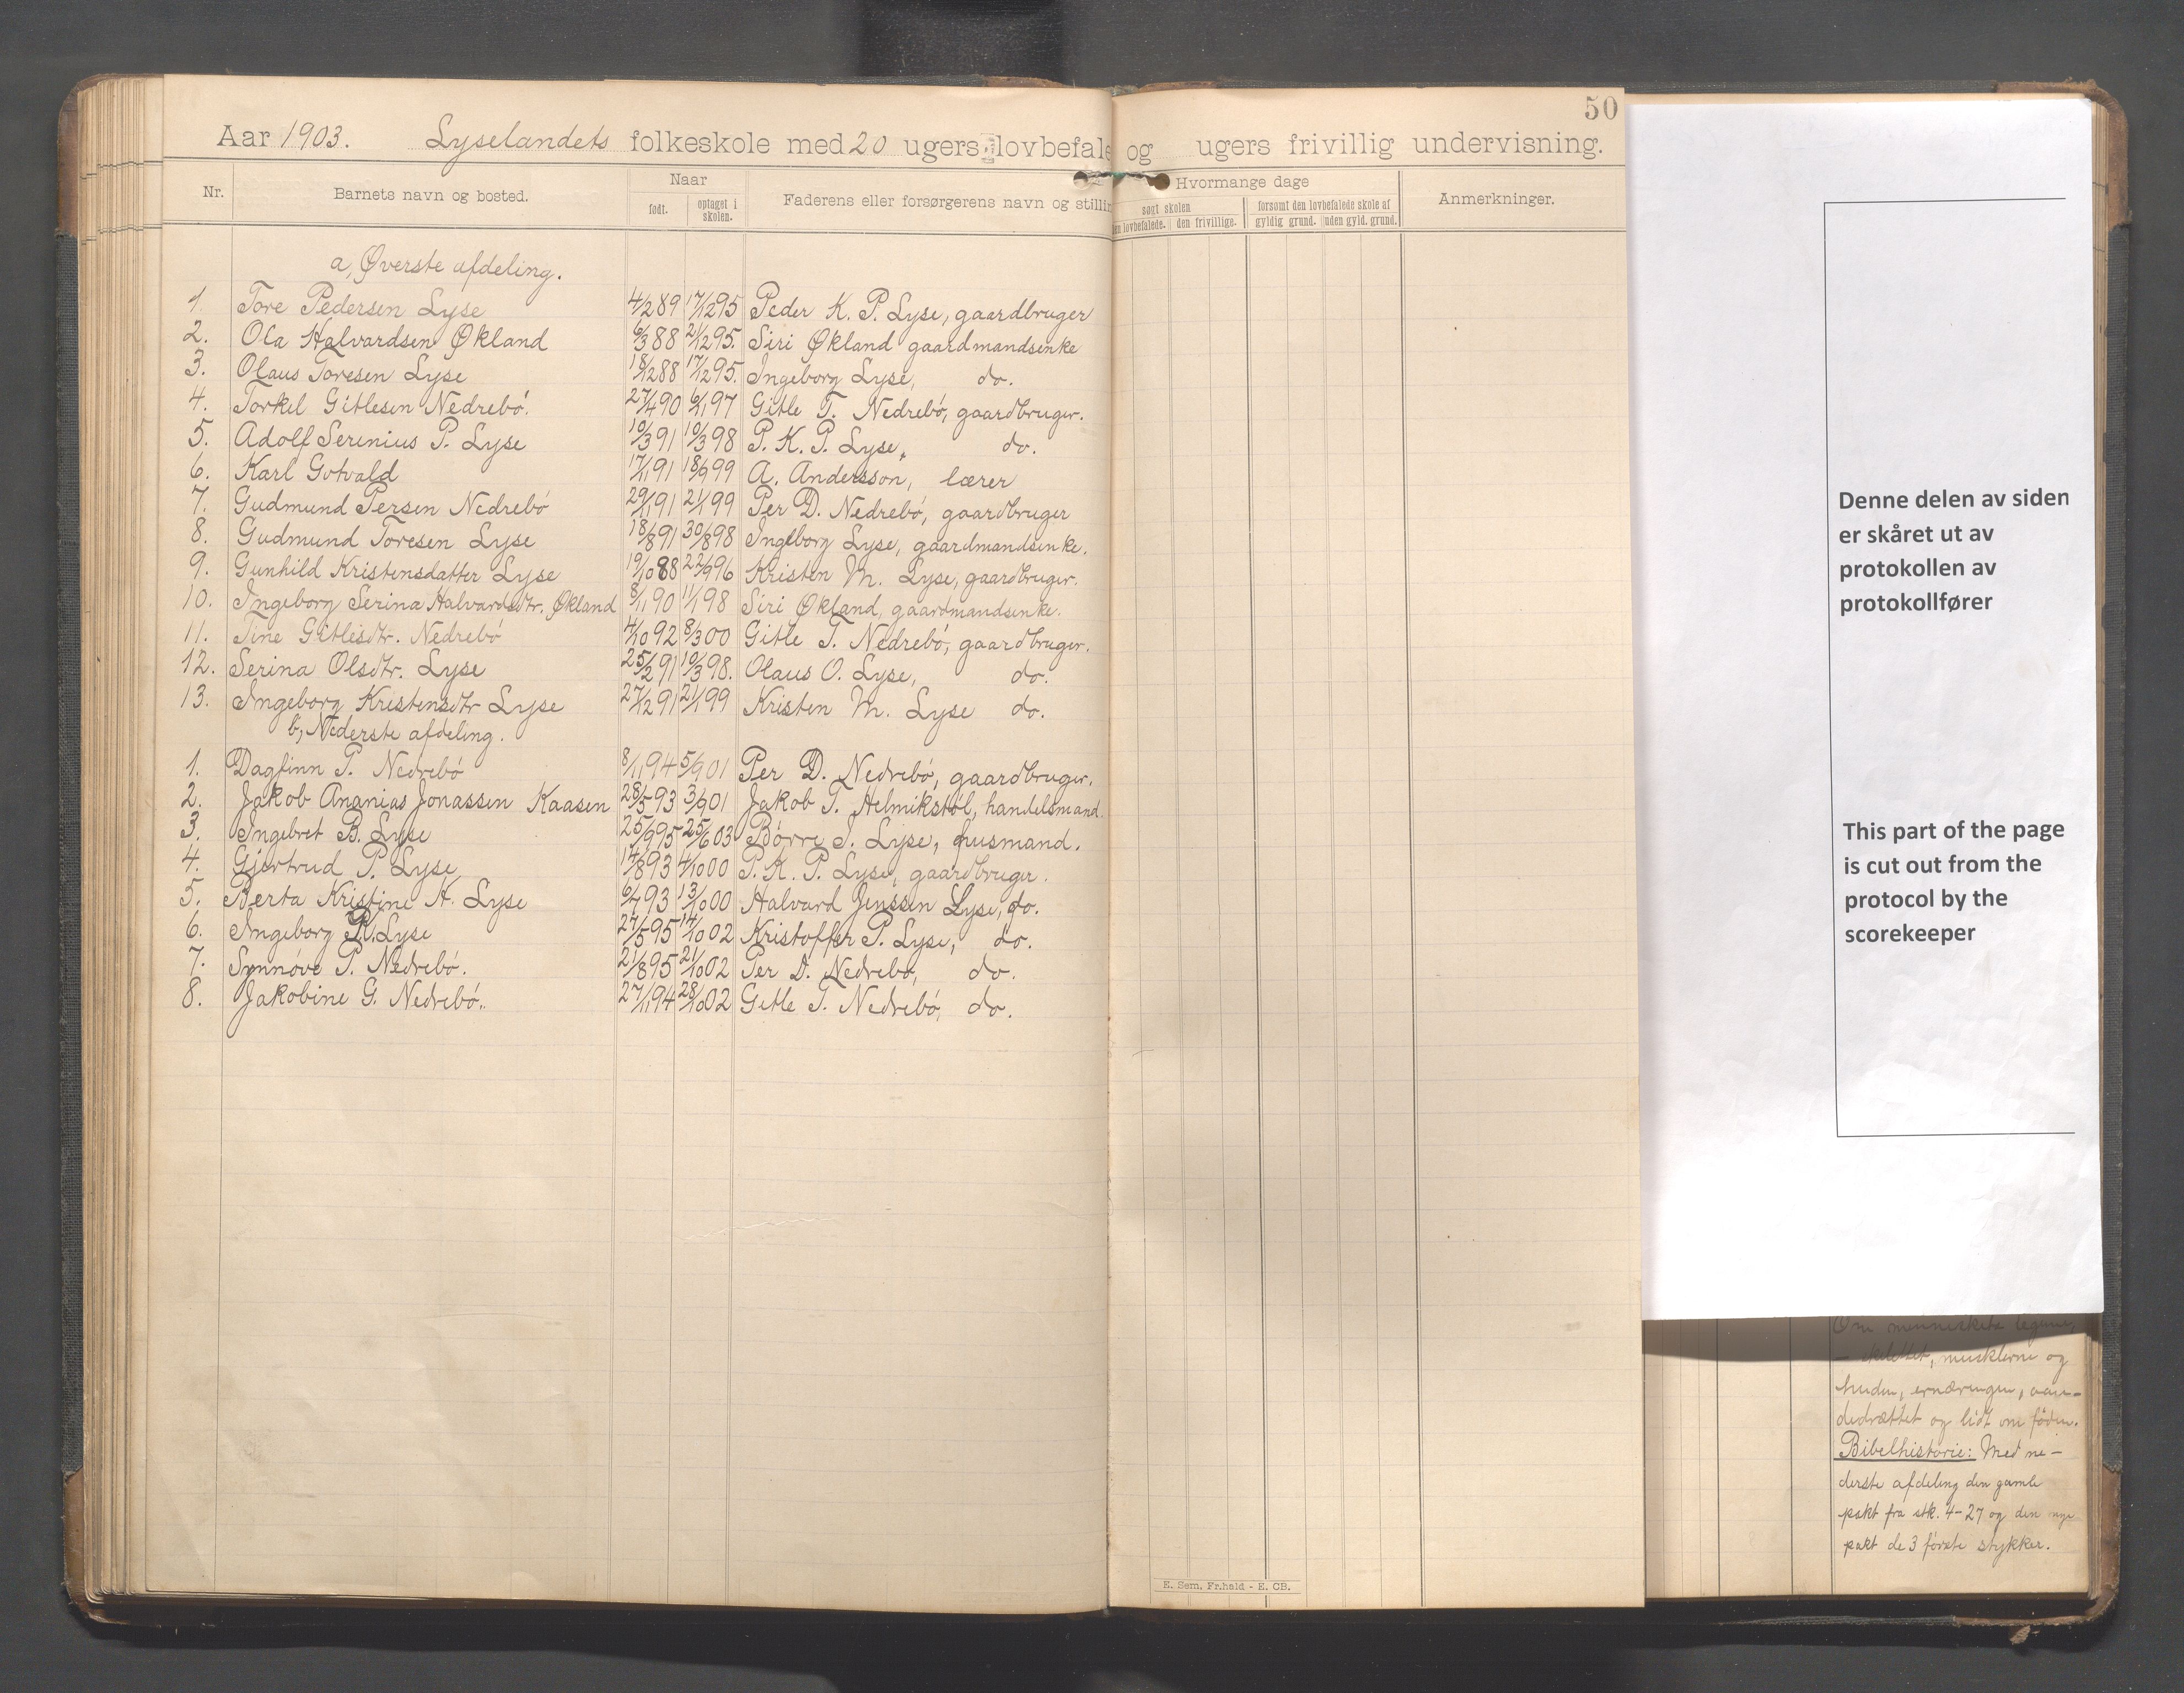 50
Aar 1903. Lyselandets folkeskole med 20 ugers lovbefale og ugers frivillig undervisning.
Nr. Barnets navn og bosted. Naar født. optaget i skolen. Faderens eller forsørgerens navn og stillin Hvormange dage søgt skolen en lovbefalede. den frivillige. forsømt den lovbefalede skole af gyldig grund. uden gyld. grund. Anmerkninger.
a, Øverste afdeling.
1. Tore Pedersen Lyse 4/2 89 17/12 95 Peder K. P. Lyse, gaardbruger
2. Ola Halvardsen Økland 6/3 88 21/12 95. Siri Økland gaardmandsenke
3. Olaus Toresen Lyse 18/12 88 17/12 95. Ingeborg Lyse, do.
4. Torkel Gitlesen Nedrebö. 27/4 90 6/11 97 Gitle T. Nedrebö, gaardbruger.
5. Adolf Serenius P. Lyse 10/3 91 10/3 98 P. K. P. Lyse, do.
6. Karl Gotvald 17/1 91 18/9 99 A. Andersson, lærer
7. Gudmund Persen Nedrebö 29/1 91 21/1 99 Per D. Nedrebö, gaardbruger
8. Gudmund Toresen Lyse 18/8 91 30/8 98 Ingeborg Lyse, gaardmandsenke.
9. Gunhild Kristensdatter Lyse 19/10 88 22/9 96 Kristen M. Lyse, gaardbruger.
10. Ingeborg Serina Halvardsdtr. Økland 8/11 90 11/1 98 Siri Økland, gaardmandsenke.
11. Tine Gitlesdtr. Nedrebö 4/10 92 8/3 00 Gitle T. Nedrebö, gaardbruger.
12. Serina Olsdtr. Lyse 25/2 91 10/3 98. Olaus O. Lyse, do.
13. Ingeborg Kristensdtr Lyse 27/12 91 21/1 99 Kristen M. Lyse do.
b, Nederste afdeling.
1. Dagfinn P. Nedrebö 8/11 94 5/9 01 Per D. Nedrebö, gaardbruger.
2. Jakob Ananias Jonassen Kaasen 28/5 93 3/9 01 Jakob T. Helmikstöl, handelsmand.
3. Ingebret B. Lyse 25/9 95 25/6 03 Börre I. Lyse, husmand.
4. Gjertrud P. Lyse 14/8 93 4/10 00 P. K. P. Lyse, gaardbruger.
5. Berta Kristine H. Lyse 6/7 93 13/10 00 Halvard Jenssen Lyse, do.
6. Ingeborg K. Lyse 27/5 95 14/10 02 Kristoffer P. Lyse, do.
7. Synnöve P. Nedrebö. 21/8 95 21/10 02 Per D. Nedrebö, do.
8. Jakobine G. Nedrebö. 27/11 94 28/10 02 Gitle T. Nedrebö, do.
E. Sem, Fr.hald - E. CB.
Denne delen av siden
er skåret ut av
protokollen av
protokollfører
This part of the page
is cut out from the
protocol by the
scorekeeper
Om menneskets legeme,
skelettet, musklerne og
huden, ernæringen, aan-
dedrættet og lidt om föden.
Bibelhistorie: Med ne-
derste afdeling den gamle
pakt fra stk. 4-27 og den nye
pakt de 3 förste stykker.